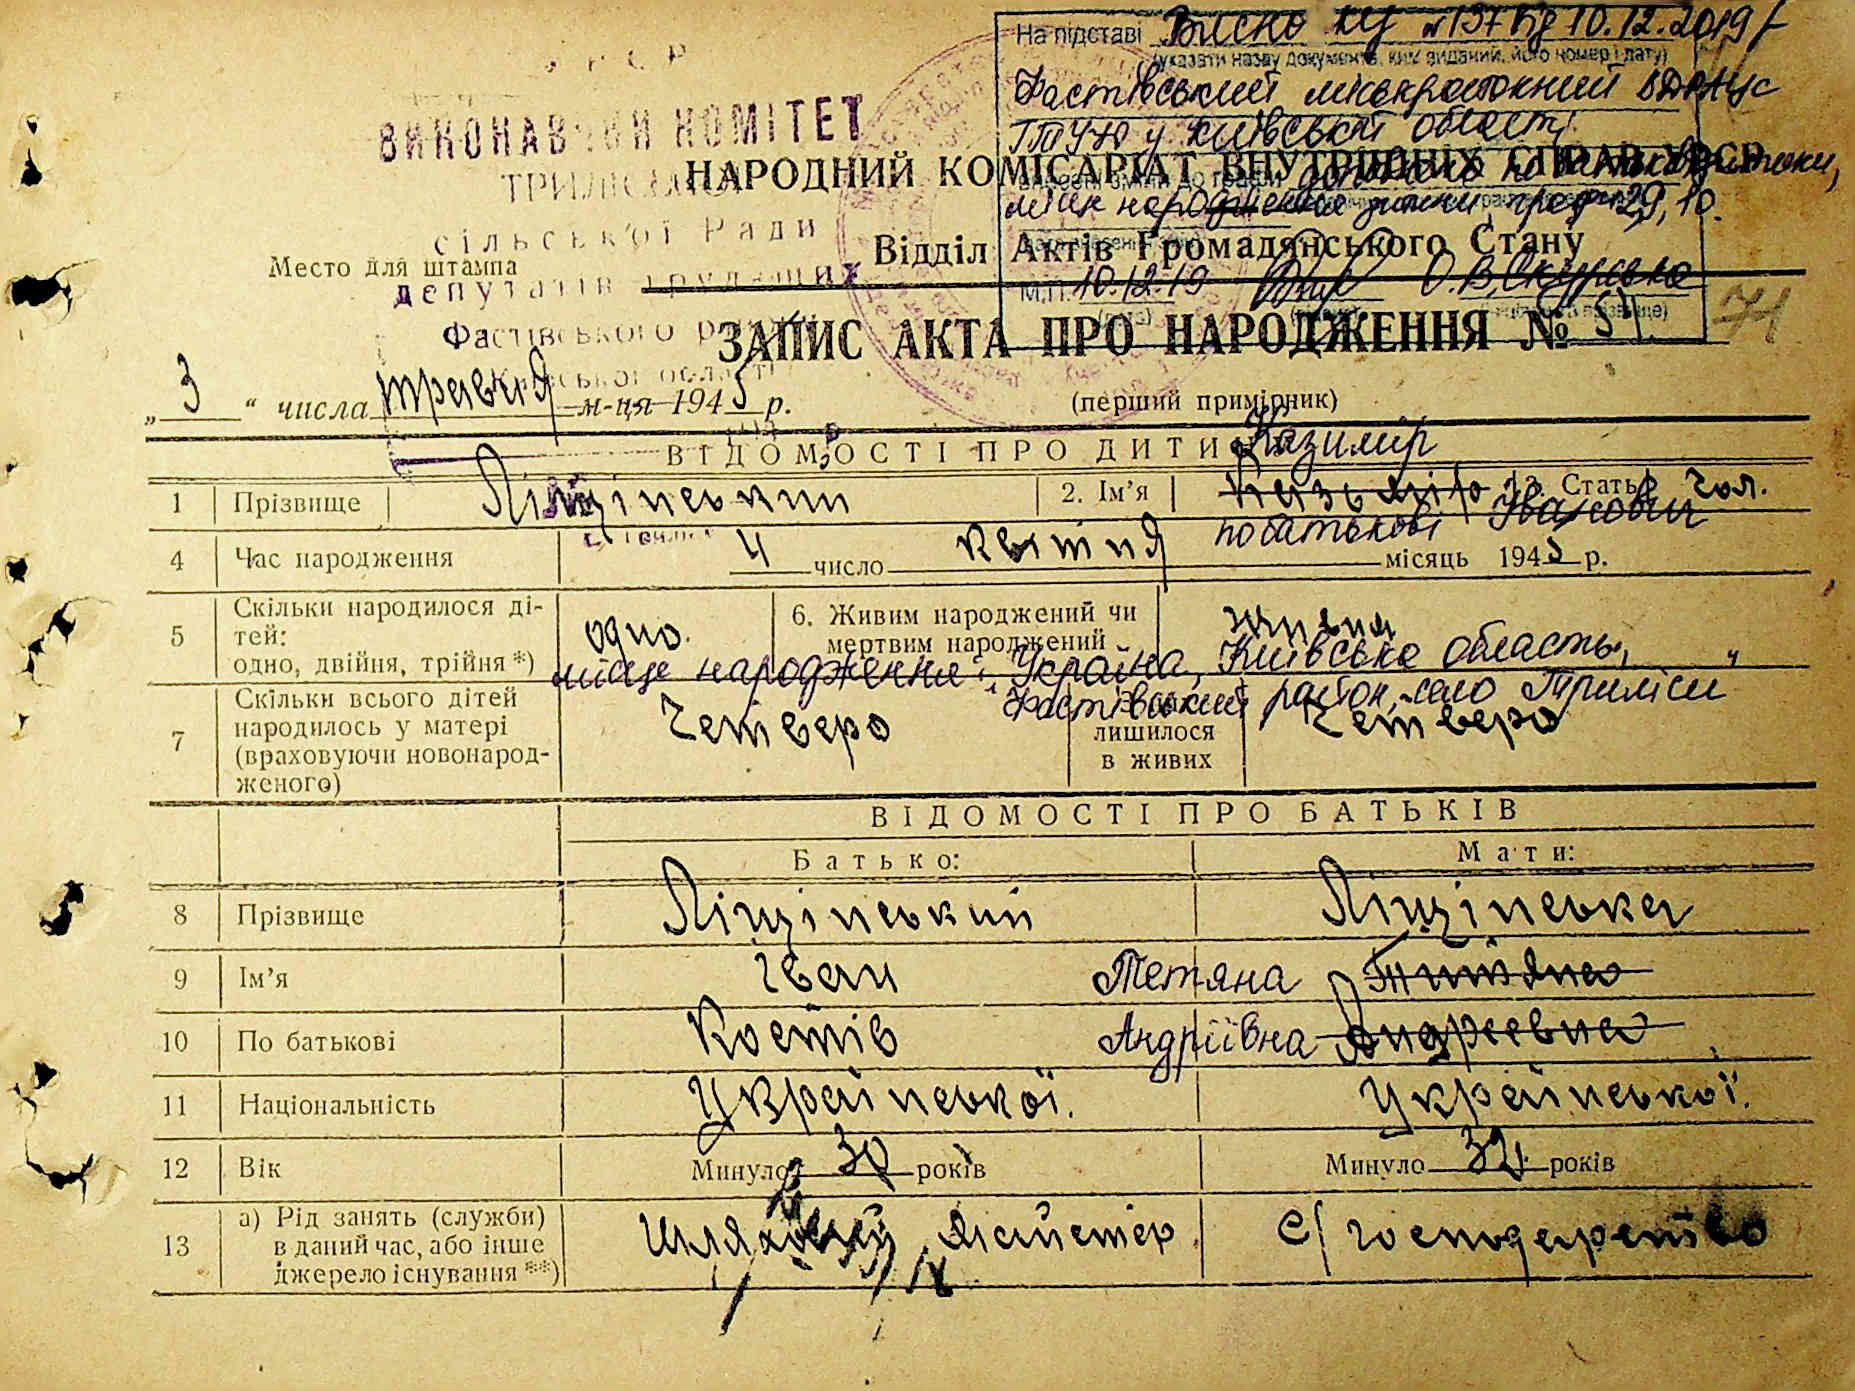 УРСР
ВИКОНАВЧИЙ КОМІТЕТ
ТРИЛІСЬКОЇ
сільської Ради
Место для штампа
депутатів трудящих
Фастівського району
Київської області
На підставі Висновку №137 від 10.12.2019 р
(указати назву документа, ким виданий, його номер і дату)
Фастівський міськрайонний ВДРАЦС
ГТУЮ у Київській області
внесені зміни до графи
місце народження дитини, граф 2, 9, 10.
М.П. 10.12.19 О.В.
НАРОДНИЙ КОМІСАРІАТ ВНУТРІШНІХ СПРАВ УРСР
Відділ Актів Громадянського Стану
ЗАПИС АКТА ПРО НАРОДЖЕННЯ № 51. 71
„ 3 “ числа травня м-ця 1945 р. (перший примірник)
ВІДОМОСТІ ПРО ДИТИНУ
Казимір
1 Прізвище Ліщінський 2. Ім’я Казьмір 3. Стать чол.
по батькові Іванович
4 Час народження 4 число квітня місяць 1945 р.
5 Скільки народилося ді-
тей:
одно, двійня, трійня *) одно. 6. Живим народжений чи
мертвим народжений живим
місце народження: Україна, Київська область,
Фастівський район, село Триліси
7 Скільки всього дітей
народилось у матері
(враховуючи новонарод-
женого) Четверо
лишилося
в живих Четверо
ВІДОМОСТІ ПРО БАТЬКІВ
Батько: Мати:
8 Прізвище Ліщінський Ліщінська
9 Ім’я Іван Тетяна Титяна
10 По батькові Костів Андріївна Андреевна
11 Національність Української. Української.
12 Вік Минуло 30 років Минуло 32 років
13 а) Рід занять (служби)
в даний час, або інше
джерело існування **) Шляховий майстер С/господарство